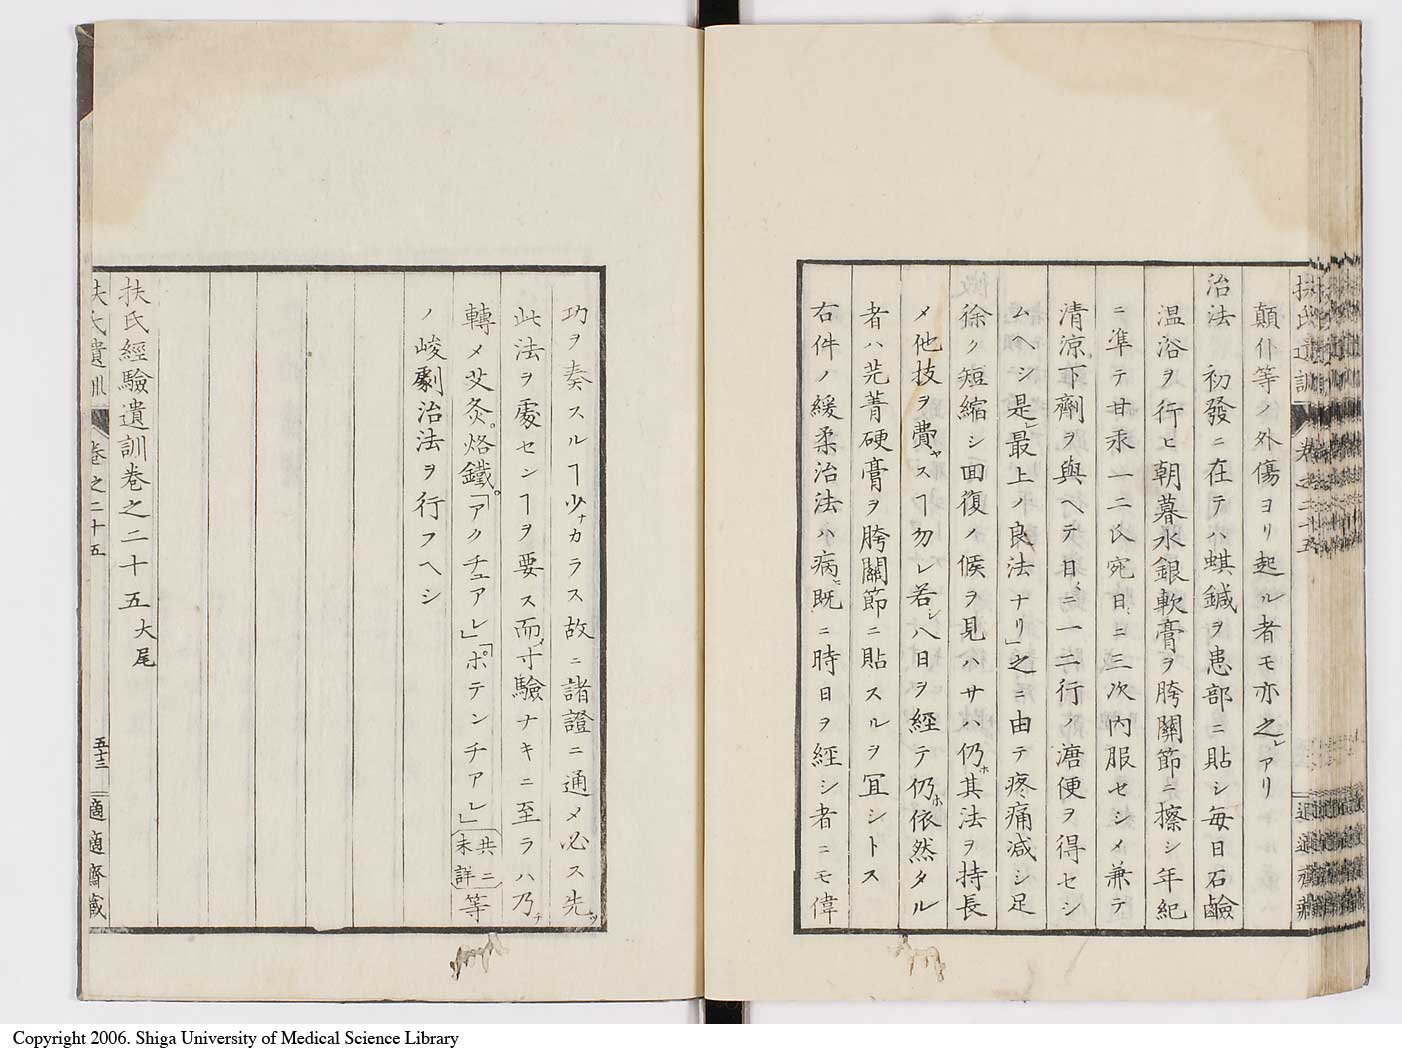 顛仆等ノ外傷ヨリ起ル者モ亦之レアリ
治法　初發ニ在テハ蜞鍼ヲ患部ニ貼シ毎日石鹼
温浴ヲ行ヒ朝暮水銀軟膏ヲ胯關節ニ擦シ年紀
ニ準テ甘汞一二氏宛日ニ三次内服セシメ兼テ
清凉下劑ヲ與ヘテ日ニ一二行ノ溏便ヲ得セシ
ムヘシ是レ最上ノ良法ナリ」之ニ由テ疼痛减シ足
徐ク短縮シ回復ノ候ヲ見ハサハ仍ホ其法ヲ持長
メ他技ヲ費ヤスヿ勿レ若シ八日ヲ經テ仍ホ依然タル
者ハ芫菁硬膏ヲ胯關節ニ貼スルヲ冝シトス
右件ノ緩柔治法ハ病ヒ既ニ時日ヲ經シ者ニモ偉
功ヲ奏スルヿ少ナカラス故ニ諸證ニ通メ必ス先ツ
此法ヲ處センヿヲ要ス而メ寸驗ナキニ至ラハ乃チ
轉メ艾灸。烙鐵。「アクチュアレ」「ポテンチアレ」共ニ未詳等
ノ峻劇治法ヲ行フヘシ
扶氏經驗遺訓卷之二十五大尾
扶氏遺訓　卷之二十五　五十三　適適齋藏
Copyright 2006. Shiga University of Medical Science Library